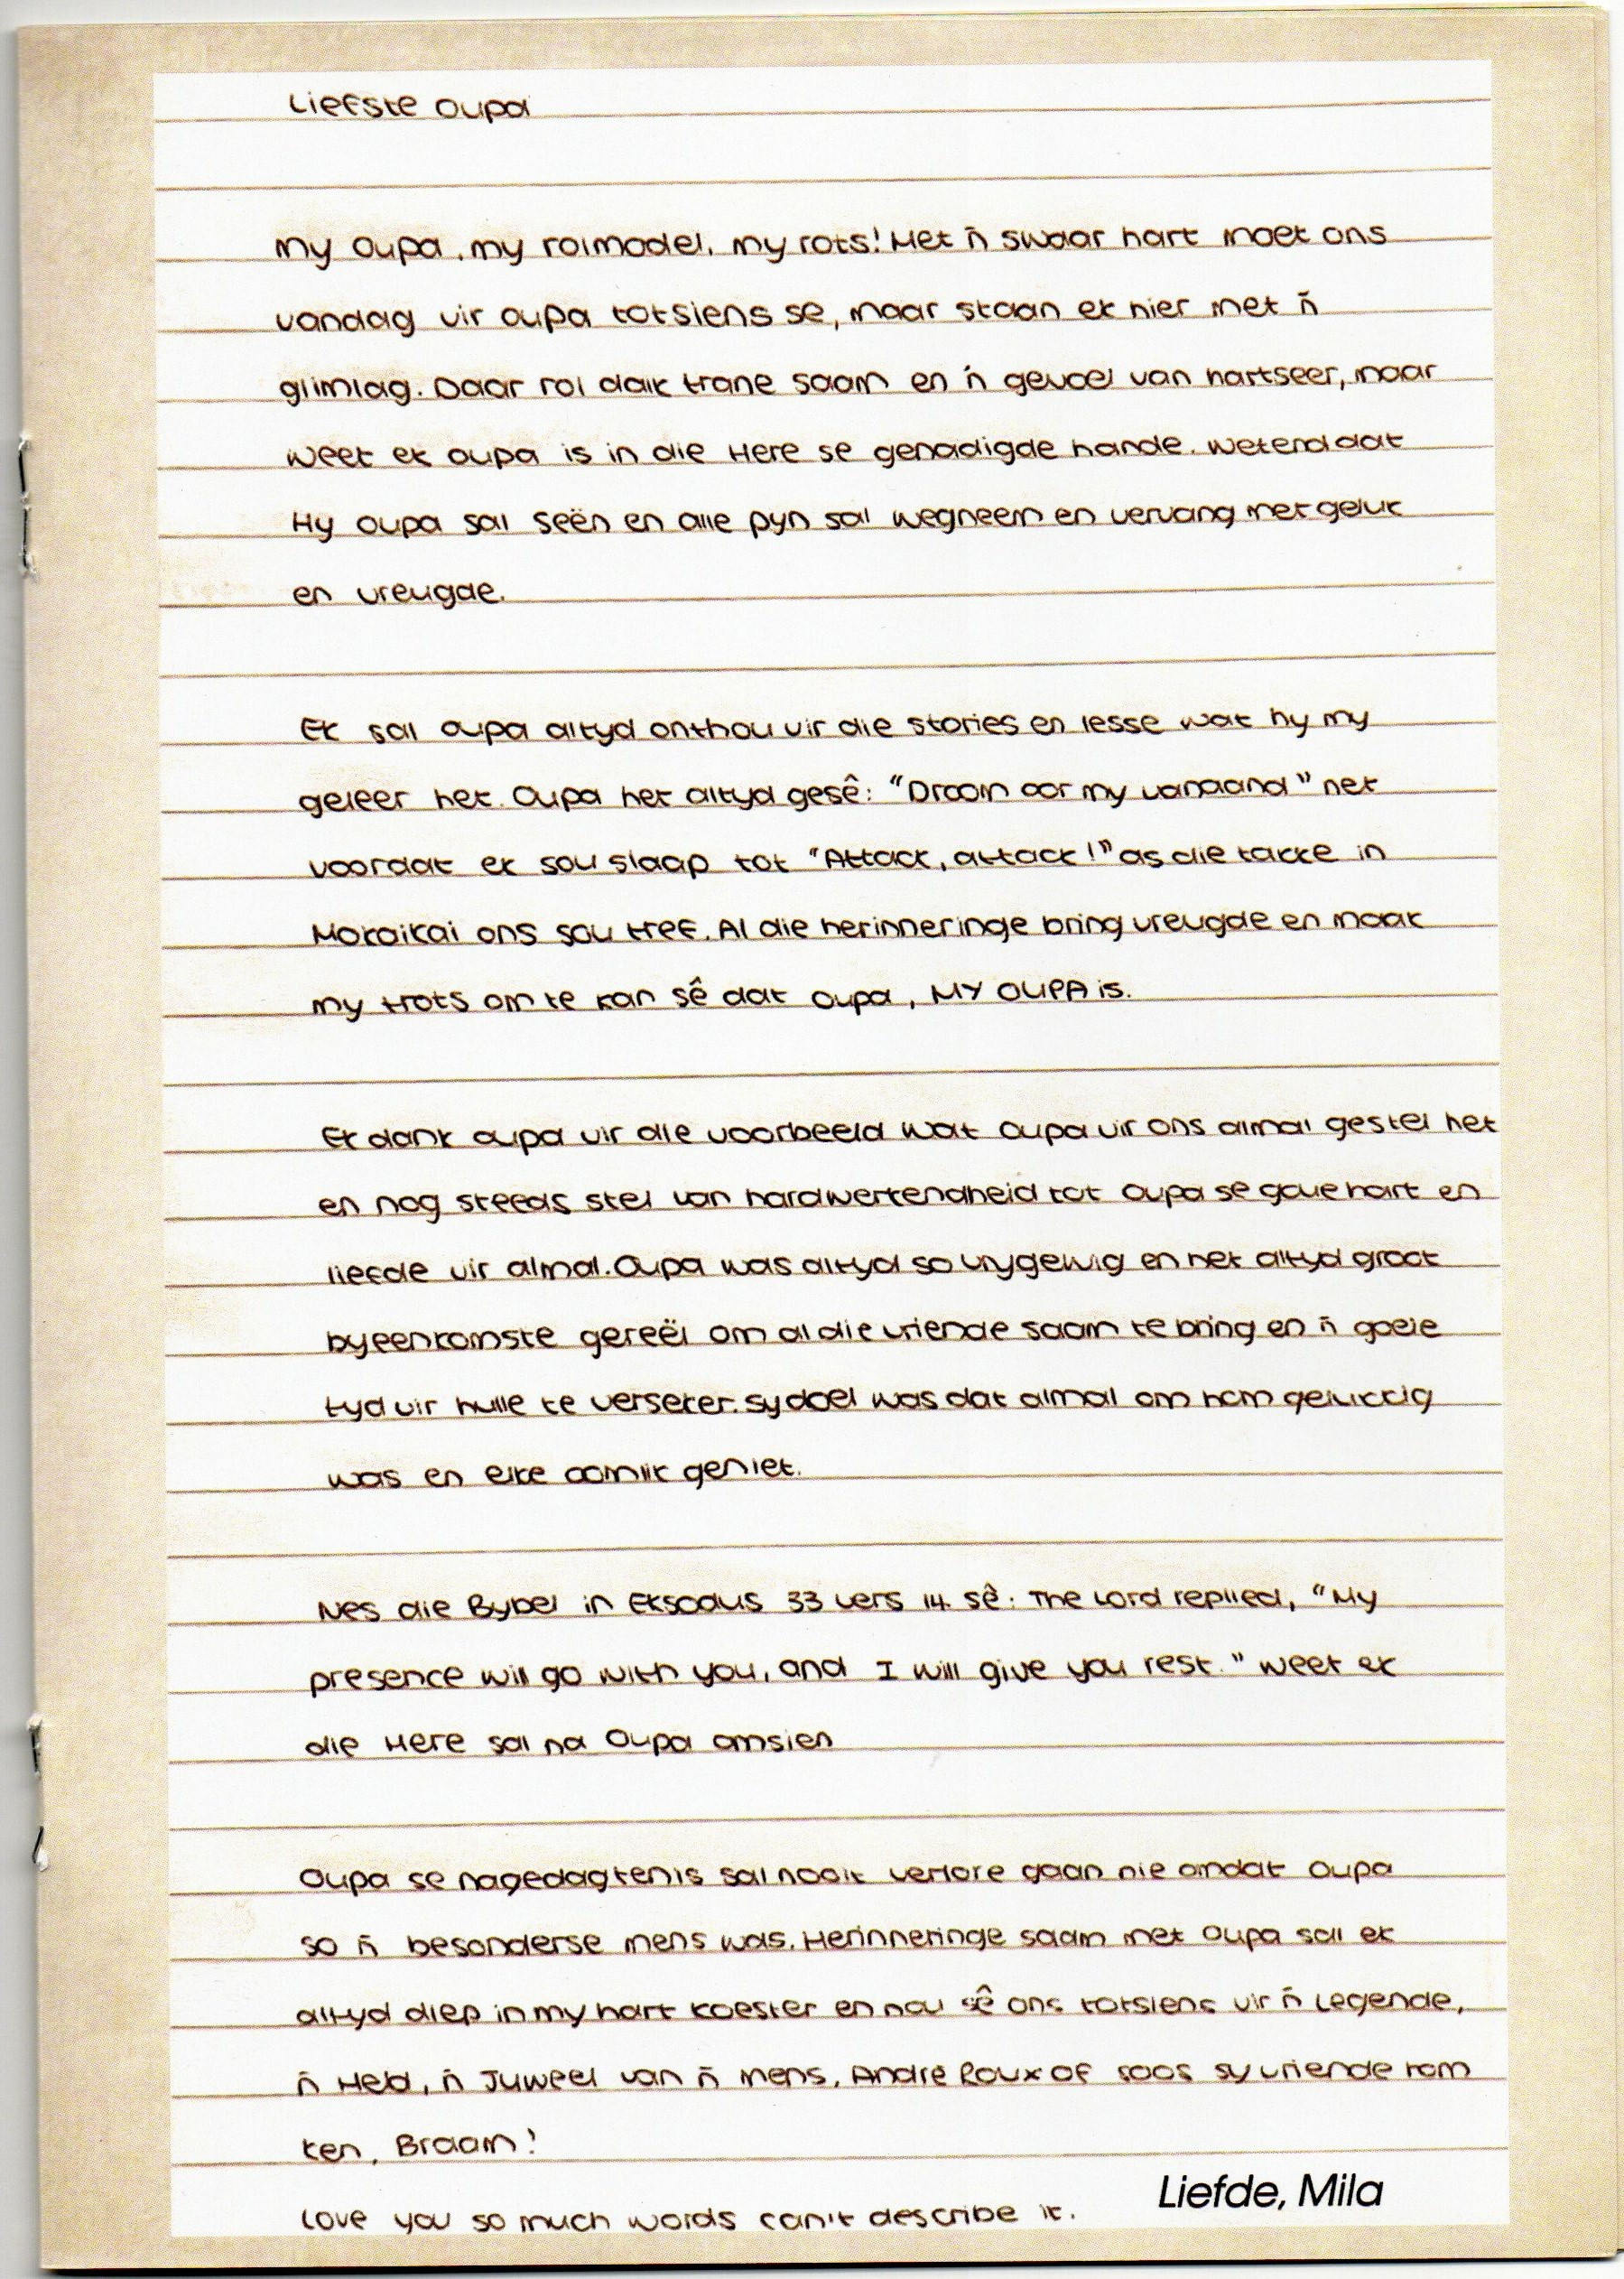 Liefste Oupa
My Oupa, my rolmodel, my rots! Met 'n swaar hart moet ons
vandag vir oupa totsiens se, maar staan ek hier met 'n
glimlag. Daar rol dalk trane saam en 'n gevoel van hartseer, maar
weet ek oupa is in die Here se genadigde hande. Wetend dat
Hy oupa sal seën en alle pyn sal wegneem en vervang met geluk
en vreugde.
Ek sal oupa altyd onthou vir die stories en lesse wat hy my
geleer het. Oupa het altyd gesê: "Droom oor my vanaand" net
voordat ek sou slaap tot "Attack, attack!" as die takke in
Mokaikai ons sou tref. Al die herinneringe bring vreugde en maak
my trots om te kan sê dat oupa, MY OUPA is.
Ek dank oupa vir die voorbeeld wat Oupa vir ons almal gestel het
en nog steeds stel van hardwerkendheid tot Oupa se goue hart en
liefde vir almal. Oupa was altyd so vrygewig en het altyd groot
byeenkomste gereël om al die vriende saam te bring en 'n goeie
tyd vir hulle te verseker. Sy doel was dat almal om hom gelukkig
was en elke oomlik geniet.
Nes die Bybel in Eksodus 33 vers 14 sê: The Lord replied, "My
presence will go with you, and I will give you rest." weet ek
die Here sal na Oupa omsien
Oupa se nagedagtenis sal nooit verlore gaan nie omdat Oupa
so 'n besonderse mens was. Herinneringe saam met Oupa sal ek
altyd diep in my hart koester en nou sê ons totsiens vir 'n Legende,
'n Held, 'n Juweel van 'n mens, André Roux of soos sy vriende hom
ken, Braam!
Love you so much words can't describe it.
Liefde, Mila